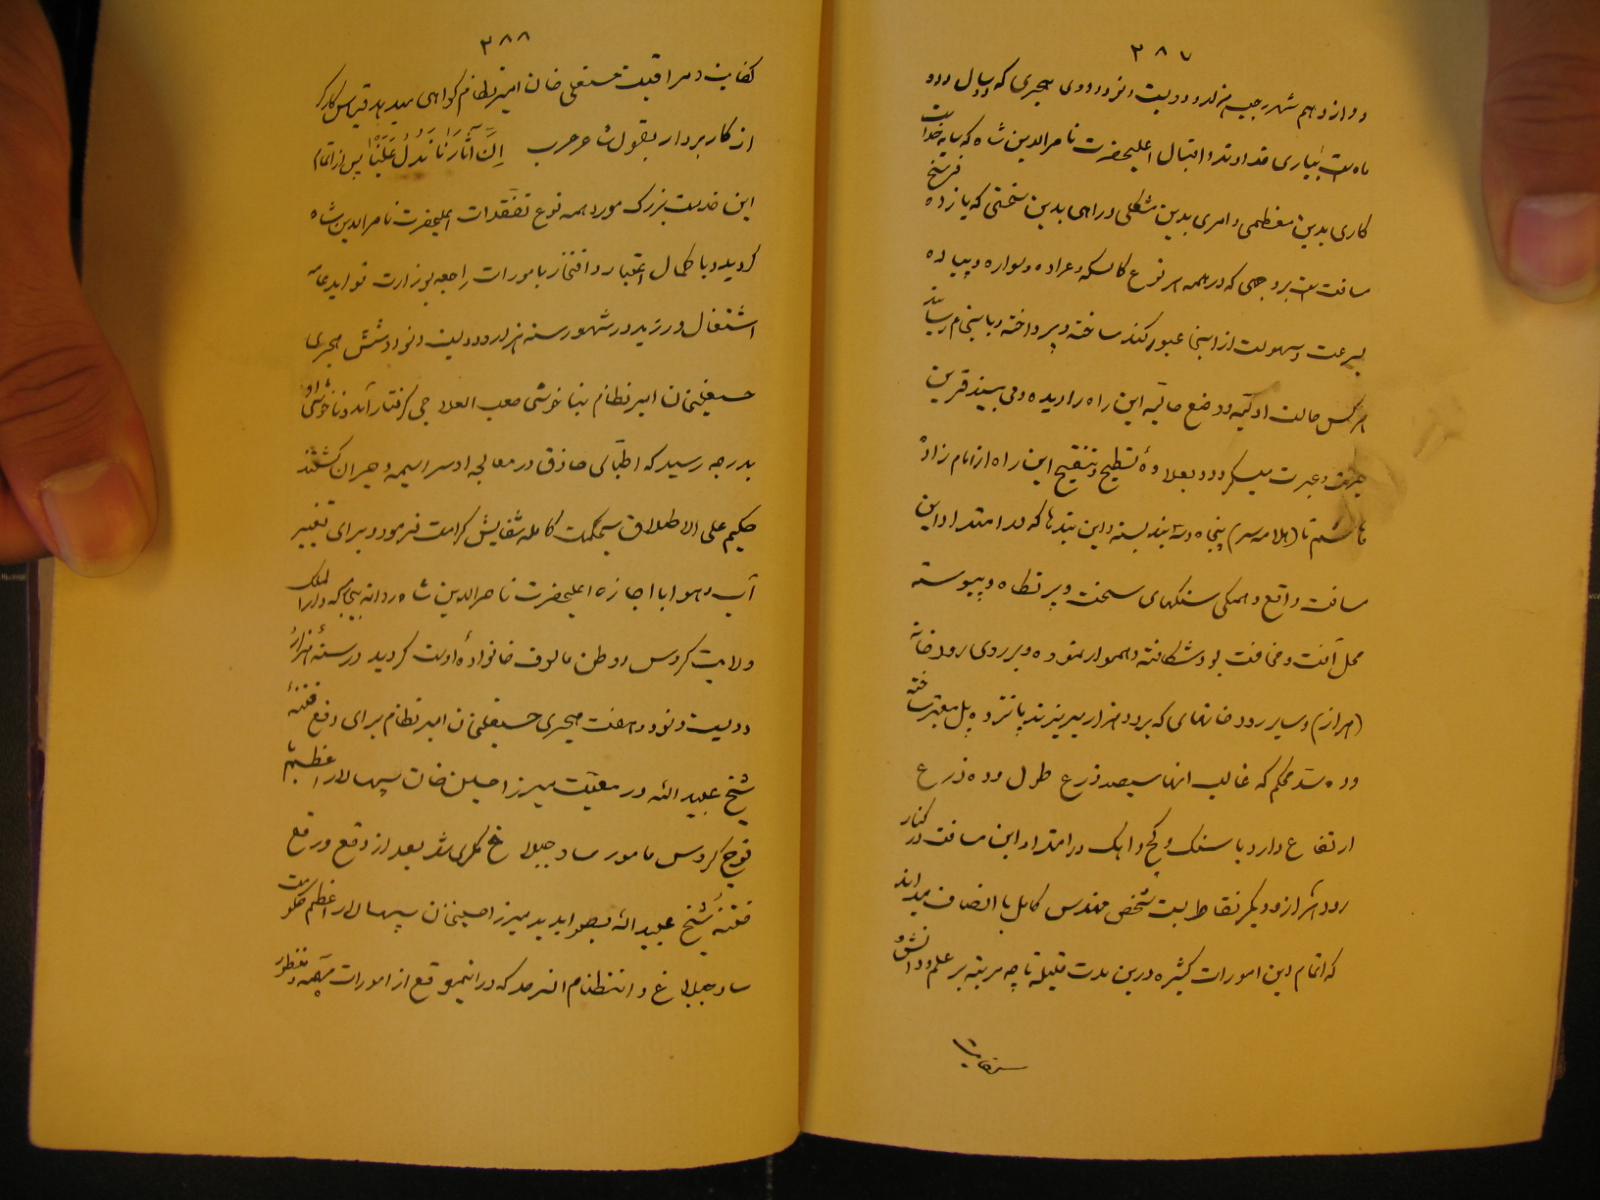 ۲۸۷
دوازدهم شهر رجب هزار و دویست و نود و دوی هجری که دو سال و دو
ماه است بیاری خداوند و اقبال اعلیحضرت ناصرالدین شاه که سایه خداست
کاری بدین معظمی و امری بدین مشکلی و راهی بدین سختی که یازده فرسخ
مسافت است بروجهی که در همه هر نوع کالسکه و عراده و سواره و پیاده
بسرعت و سهولت از اینجا عبور کند ساخته و پرداخته و بانجام رسانید
هر کس حالت اولیه و وضع حالیه این راه را دیده و می بیند قرین
حیرت و عبرت میگردد و بعلاوهٔ تسطیح و تنقیح این راه از امام زاده
هاشم تا (هلامه سر) پنجاه و سه بند بسته و این بندها که در امتداد این
مسافت واقع و همگی سنگهای سخت و پرتگاه و پیوسته
محل آفت و مخافت بود شکافته و هموار نموده و بر روی رودخانه
(هراز) و سایر رودخانهای که برود هزار میریزند پانزده پل معتبر ساخته
و ده سد محکم که غالب انها سیصد ذرع طول و ده ذرع
ارتفاع دارد با سنک و گچ و اهک در امتداد این مسافت در کنار
رود هراز و دیگر نقاط بست شخص مهندس کامل با انصاف میداند
که اتمام این امورات کثیره درین مدت قلیله تا چه مرتبه بر علم و دانش و
کفایت
۲۸۸
کفایت و مراقبت حسنعلی خان امیر نظام گواهی میدهد قیاس کارگر
از کار بردار بقول شاعر عرب اِنَّ آثَارَنَا تَدُلُّ عَلَیْنَا پس از اتمام
این خدمت بزرک مورد همه نوع تفقدات اعلیحضرت ناصرالدین شاه
گردید و با کمال اعتبار و افتخار بامورات راجعه بوزارت فواید عامه
اشتغال ورزید در شهور سنه هزار و دویست و نود و شش هجری
حسنعلیخان امیر نظام بناخوشی صعب العلاجی گرفتار آمد و ناخوشی او
بدرجه رسید که اطبای حاذق در معالجه او سراسیمه و حیران گشتند
حکیم علی الاطلاق بحکمت کامله شفایش کرامت فرمود و برای تغییر
آب و هوا با اجازه اعلیحضرت ناصرالدین شاه روانه بیجار که دارالملک
ولایت گروس و وطن مالوف خانوادهٔ اوست گردید در سنهٔ هزار
دویست و نود و هفت هجری حسنعلیخان امیر نظام برای دفع فتنهٔ
شیخ عبیدالله در معیت میرزا حسین خان سپهسالار اعظم با
فوج گروس مامور ساوجبلاغ مکری شد بعد از دفع و رفع
فتنهٔ شیخ عبیدالله بصوابدید میرزا حسینخان سپهسالار اعظم حکومت
ساوجبلاغ و انتظام انسرحد که در انموقع از امورات مهمه و منظور